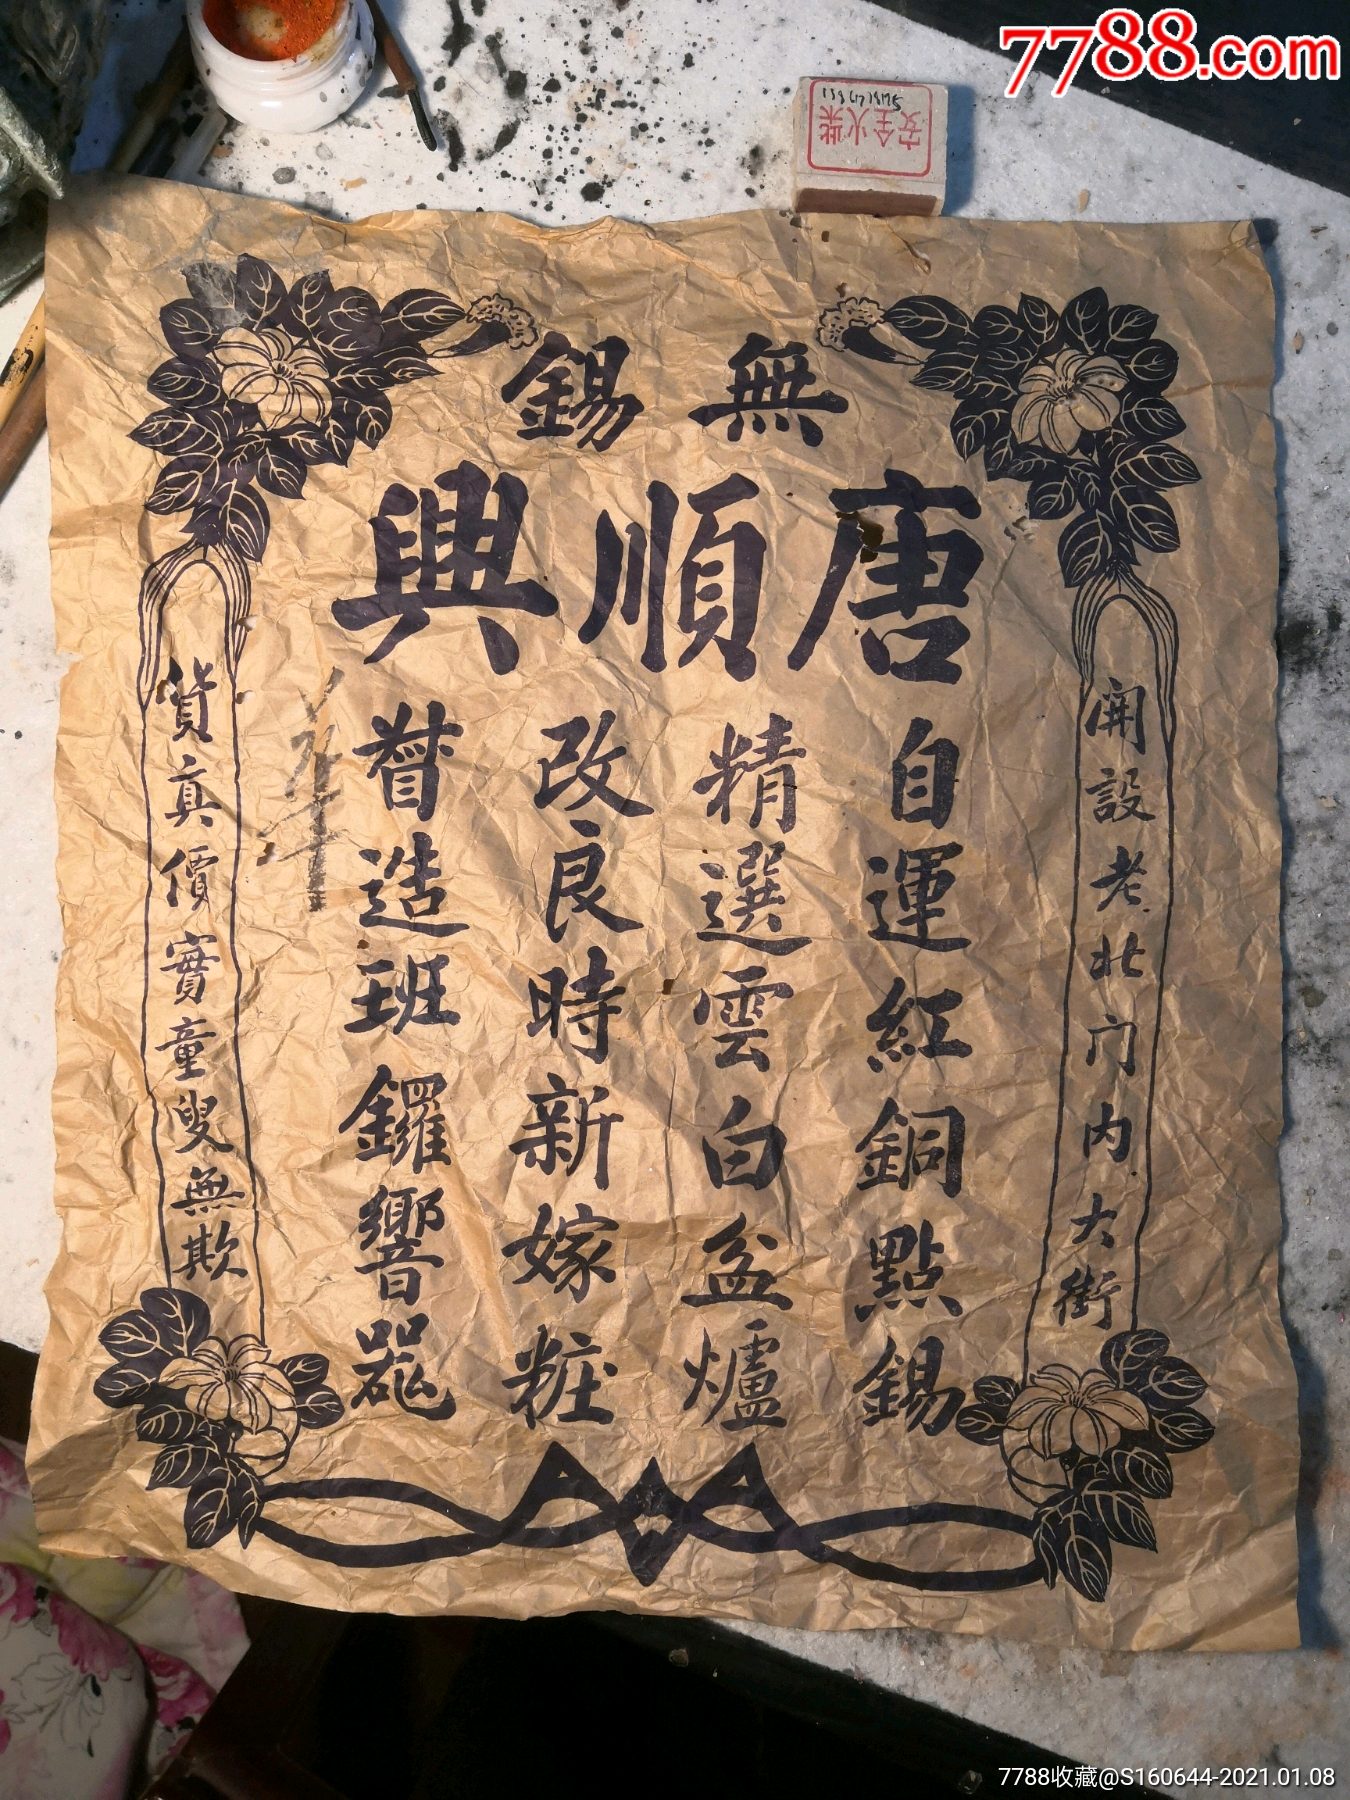 7788.com
安全火柴
無錫
唐順興
開設老北门内大街
自運紅銅點錫
精選雲白盆爐
改良時新嫁粧
督造班鑼響器
貨真價實童叟無欺
7788收藏@S160644-2021.01.08